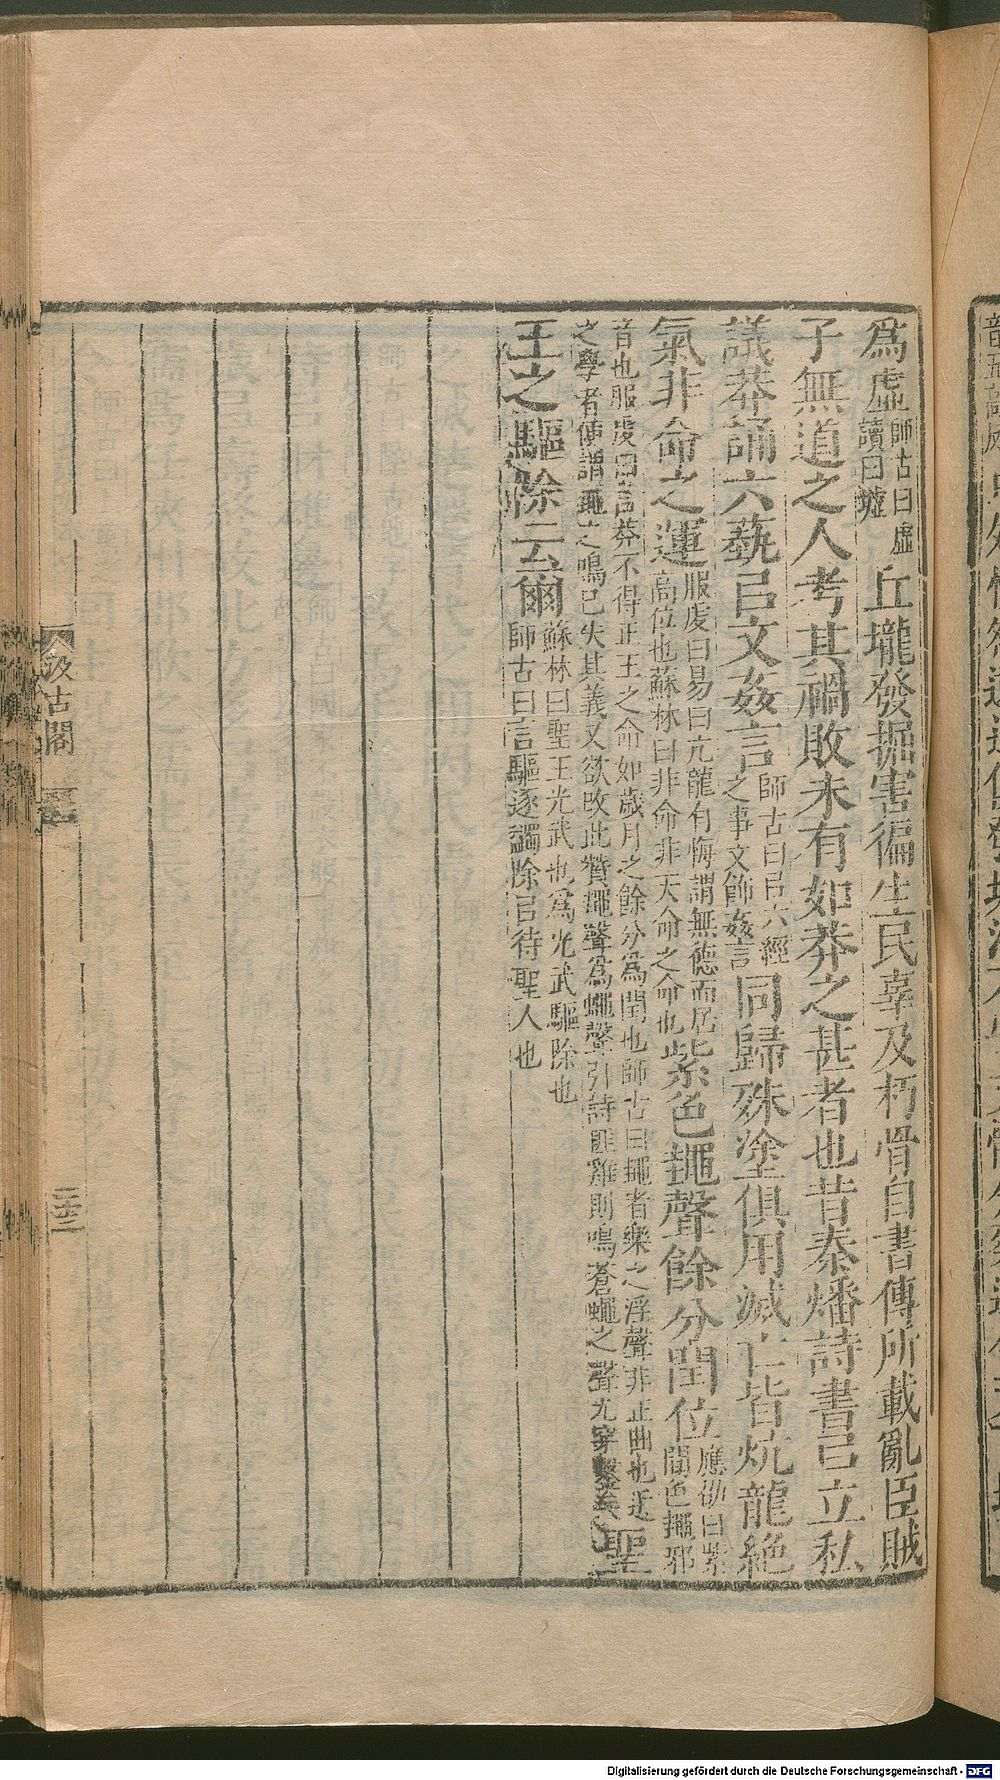 爲虛師古曰虛讀曰墟丘壠發掘害徧生民辜及朽骨自書傳所載亂臣賊
子無道之人考其禍敗未有如莽之甚者也昔秦燔詩書㠯立私
議莽誦六藝㠯文姦言師古曰㠯六經之事文飾姦言同歸殊塗俱用滅亡皆炕龍絕
氣非命之運服虔曰易曰亢龍有悔謂無德而居高位也蘇林曰非命非天命之命也紫色䵷聲餘分閏位應劭曰紫間色䵷邪
音也服虔曰言莽不得正王之命如歲月之餘分爲閏也師古曰䵷者樂之淫聲非正曲也近之學者便謂䵷之鳴已失其義又欲改此贊䵷聲爲蠅聲引詩匪雞則鳴蒼蠅之聲尤穿鑿矣聖
王之驅除云爾蘇林曰聖王光武也爲光武驅除也師古曰言驅逐蠲除㠯待聖人也
汲古閣
Digitalisierung gefördert durch die Deutsche Forschungsgemeinschaft - DFG